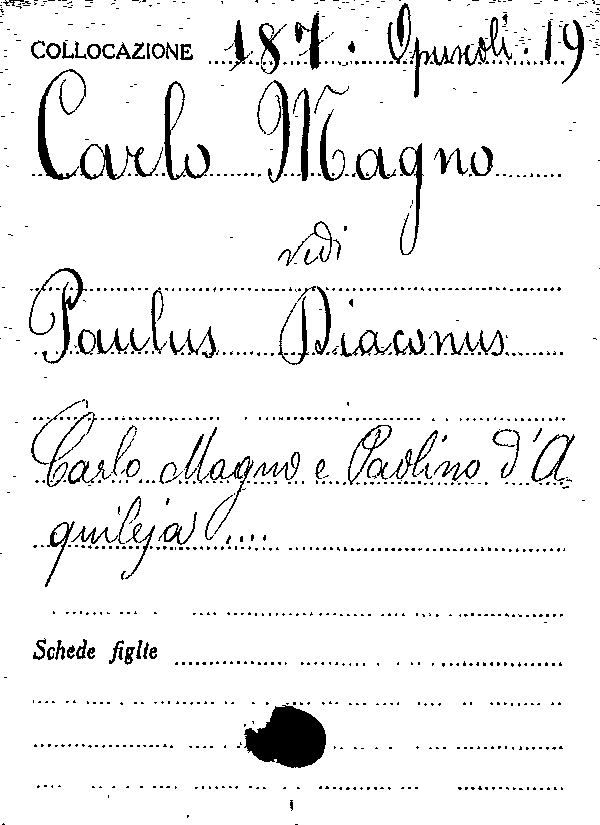 COLLOCAZIONE 187. Opuscoli. 19
Carlo Magno
vedi
Paulus Diaconus
Carlo Magno e Paolino d'A=
quileja ....
Schede figlie